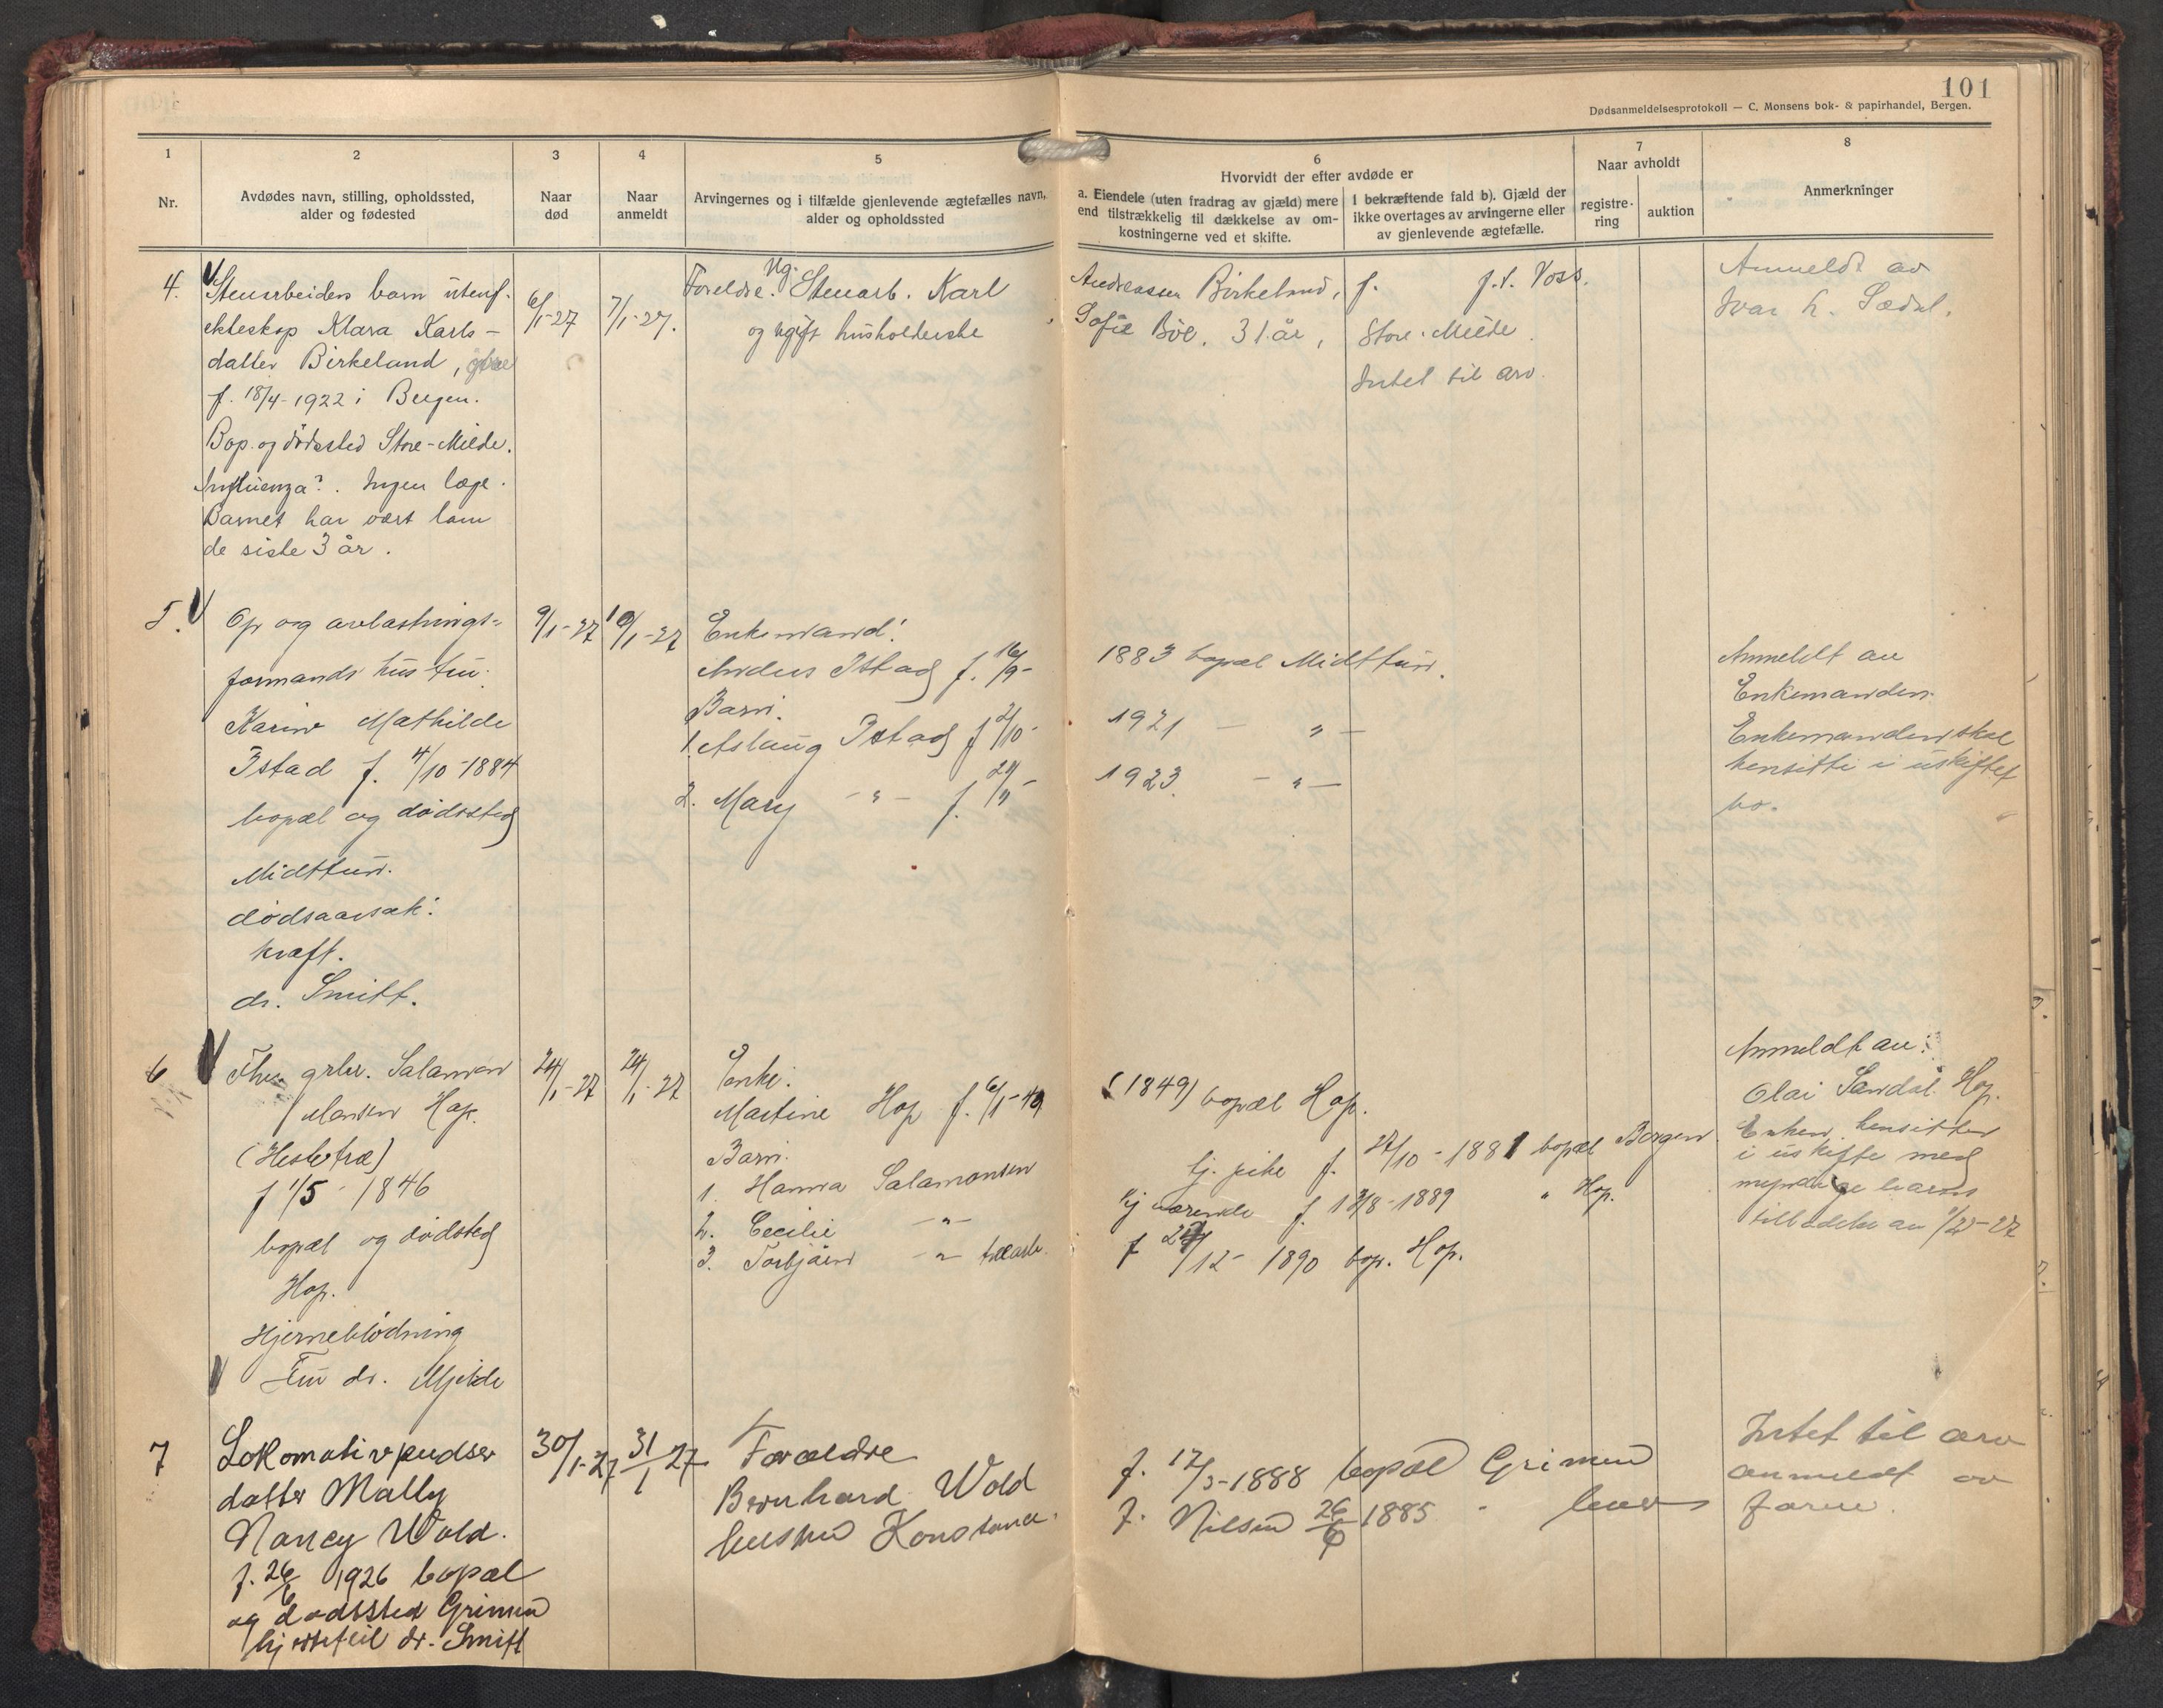 101
Dødsanmeldelsesprotokoll — C. Monsens bok- & papirhandel, Bergen.
1
2
3
4
5
6
7
8
Nr.
Avdødes navn, stilling, opholdssted,
alder og fødested
Naar
død
Naar
anmeldt
Arvingernes og i tilfælde gjenlevende ægtefælles navn,
alder og opholdssted
Hvorvidt der efter avdøde er
a. Eiendele (uten fradrag av gjæld) mere
end tilstrækkelig til dækkelse av om-
kostningerne ved et skifte.
I bekræftende fald b). Gjæld der
ikke overtages av arvingerne eller
av gjenlevende ægtefælle.
Naar avholdt
registre-
ring
auktion
Anmerkninger
4.
Stenarbeiders barn utenf.
ekteskap Klara Karls-
datter Birkeland,
f. 18/4-1922 i Bergen.
Bop. og dødssted Store-Milde.
Influenza?. Ingen læge.
Barnet har vært lam
de siste 3 år.
6/1-27
7/1-27.
Foreldre: Ug. Stenarb. Karl
og ugift husholderske
Andreassen Birkeland, f. f.t. Voss.
Sofie Böe, 31 år, Store-Milde.
Intet til arv.
Anmeldt av
Ivar H. Sædal.
5.
Op og avlastnings-
formands hustru
Karin Mathilde
Istad f. 4/10-1884
bopæl og dødssted
Midttun.
dødsaarsak:
kræft.
dr. Smitt.
9/1-27
10/1-27
Enkemand:
Anders Istad f. 16/9-
Barn.
1. Aslaug Istad f 2/10-
2. Mary -"- f.
1883 bopæl Midttun.
1921 - " -
1923. - " -
Anmeldt av
Enkemanden.
Enkemanden skal
hensitte i uskiftet
bo.
6
Fhv. grbr. Salamon
Monsen Hop.
(Hestetræ)
f 1/5-1846
bopæl og dødsted
Hop.
Hjerneblødning
Fru dr. Mjelde
24/1-27
24/1-27
Enke:
Martine Hop f. 6/1-49
Barn.
1. Hanna Salamonsen
2. Cecilie -"-
3. Torbjørn -"-
(1849) bopæl Hop.
tj. pike f. 27/10-1881 bopæl Bergen.
hjemværende f. 13/8-1889 " Hop.
f 12- 1890 bop. Hop.
Anmeldt av:
Olai Sandal Hop.
Enken hensitter
i uskifte med
myndige barns
tilladelse av 1/2-27
7
Lokomotivpudser
datter Mally
Nancy Wold.
f. 26/6 1926 bopæl
og dødssted Grimen
hjertefeil dr. Smitt
30/1-27
31/1 27
Forældre
Bernhard Wold
hustru Konstance
f. 17/3-1888 bopæl Grimen
f. Nilsen 26/6 1885
Intet til arv
anmeldt av
faren.